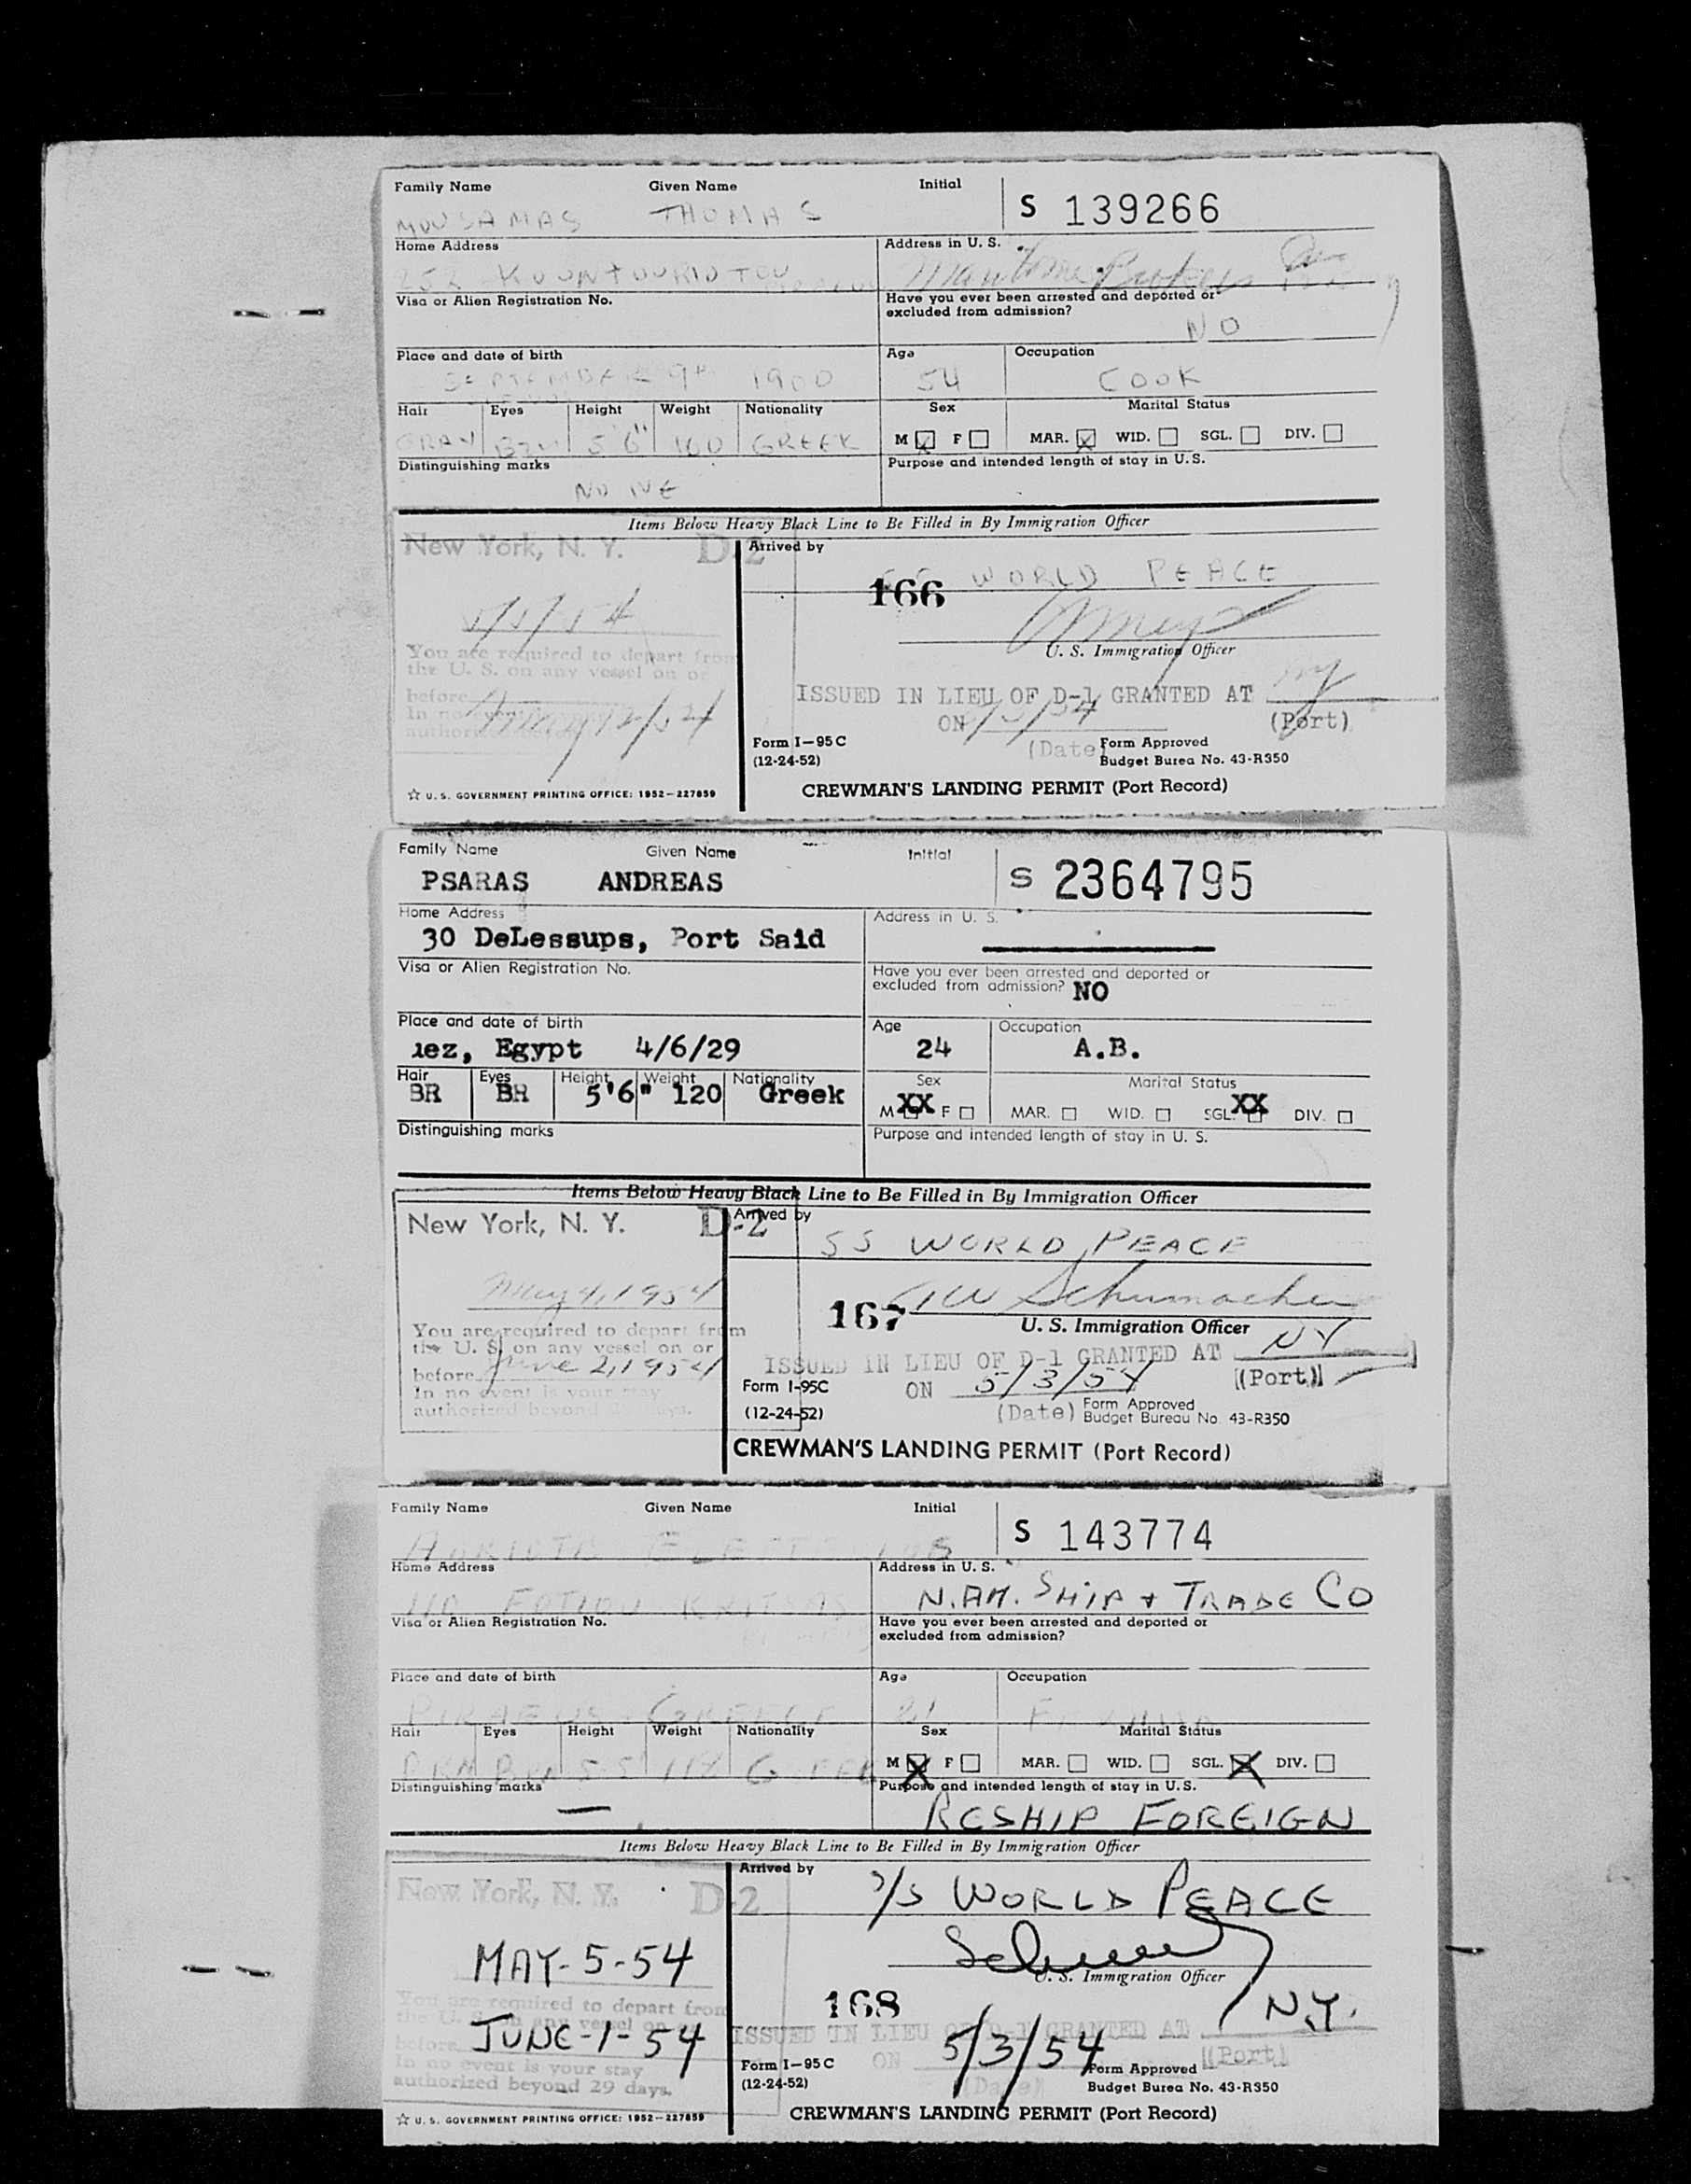 Family Name Given Name Initial S 139266
THOMAS
Home Address Address in U. S.
Visa or Alien Registration No. Have you ever been arrested and deported or
excluded from admission?
NO
Place and date of birth Age Occupation
SEPTEMBER 9th 1900 54 COOK
Hair Eyes Height Weight Nationality Sex Marital Status
GRAY 5'6" 160 GREEK M F MAR. WID. SGL. DIV.
Distinguishing marks Purpose and intended length of stay in U.S.
NONE
Items Below Heavy Black Line to Be Filled in By Immigration Officer
New York, N. Y. D-2 Arrived by
WORLD PEACE
166
You are required to depart from
the U. S. on any vessel on or
before
U. S. Immigration Officer
ISSUED IN LIEU OF D-1 GRANTED AT NY
ON (Port)
(Date)
Form I-95C Form Approved
(12-24-52) Budget Burea No. 43-R350
☆ U. S. GOVERNMENT PRINTING OFFICE: 1952-227859
CREWMAN'S LANDING PERMIT (Port Record)
Family Name Given Name Initial S 2364795
PSARAS ANDREAS
Home Address Address in U. S.
30 DeLessups, Port Said
Visa or Alien Registration No. Have you ever been arrested and deported or
excluded from admission? NO
Place and date of birth Age Occupation
uez, Egypt 4/6/29 24 A.B.
Hair Eyes Height Weight Nationality Sex Marital Status
BR BR 5'6" 120 Greek M XX F MAR. WID. SGL. XX DIV.
Distinguishing marks Purpose and intended length of stay in U. S.
Items Below Heavy Black Line to Be Filled in By Immigration Officer
New York, N. Y. D-2 Arrived by
SS WORLD PEACE
May 4, 1954
167 Schumacher
You are required to depart from U. S. Immigration Officer
the U. S. on any vessel on or
before June 2, 1954
In no event is your stay
authorized beyond
ISSUED IN LIEU OF D-1 GRANTED AT NY
ON 5/3/54 (Port)
(Date)
Form I-95C Form Approved
(12-24-52) Budget Bureau No. 43-R350
CREWMAN'S LANDING PERMIT (Port Record)
Family Name Given Name Initial S 143774
Home Address Address in U. S.
N. AM. SHIP + TRADE CO
Visa or Alien Registration No. Have you ever been arrested and deported or
excluded from admission?
Place and date of birth Age Occupation
PIRAEUS - GREECE 21
Hair Eyes Height Weight Nationality Sex Marital Status
BRN 5-5 GREEK M X F MAR. WID. SGL. X DIV.
Distinguishing marks Purpose and intended length of stay in U.S.
— RESHIP FOREIGN
Items Below Heavy Black Line to Be Filled in By Immigration Officer
New York, N. Y. D-2 Arrived by S/S WORLD PEACE
MAY-5-54
U. S. Immigration Officer
You are required to depart from 168 N.Y.
the U. S. on any vessel on or
before JUNE-1-54
In no event is your stay
authorized beyond 29 days.
ISSUED IN LIEU OF D-1 GRANTED AT
ON 5/3/54 (Port)
(Date)
Form I-95C Form Approved
(12-24-52) Budget Burea No. 43-R350
☆ U. S. GOVERNMENT PRINTING OFFICE: 1952-227859
CREWMAN'S LANDING PERMIT (Port Record)